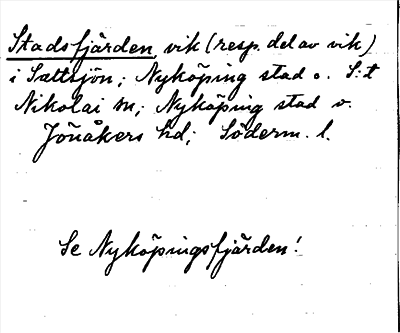 Stadsfjärden, vik (resp. del av vik)
i Sattsjön; Nyköping stad o. S:t
Nikolai sn; Nyköping stad o.
Jönåkers hd; Söderm. l.
Se Nyköpingsfjärden!